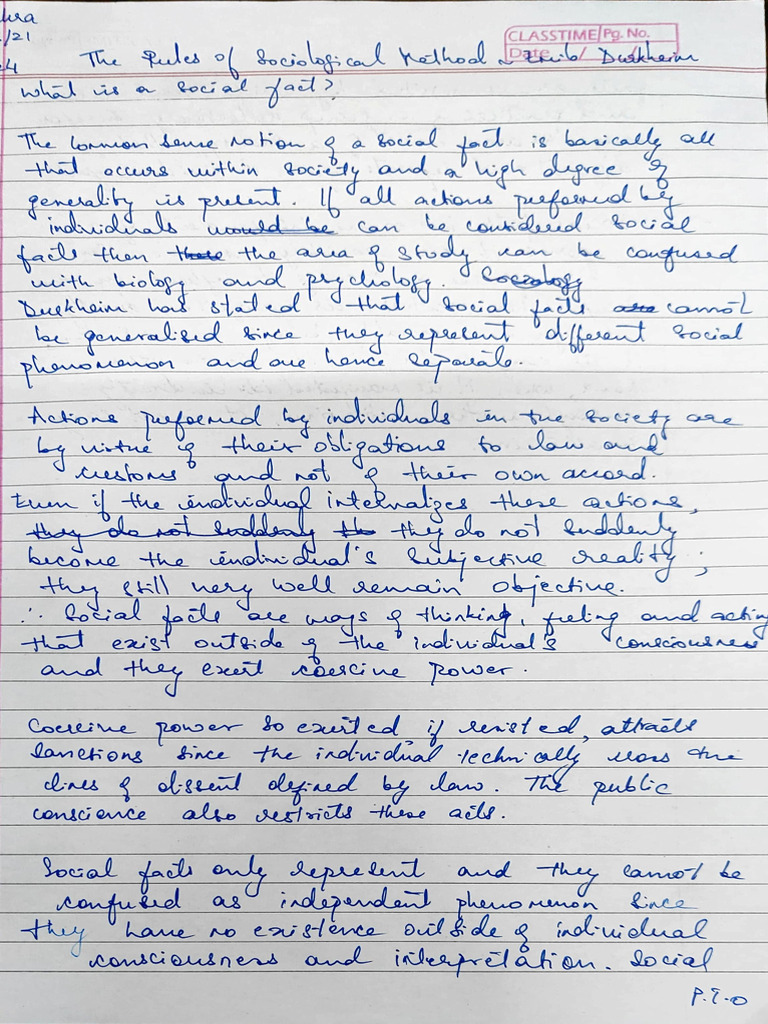 hra
/21
4
CLASSTIME Pg. No.
Date / /
The Rules of Sociological Method ~ Emile Durkheim
What is a social fact?
The common sense notion of a social fact is basically all
that occurs within society and a high degree of
generality is present. If all actions preformed by
individuals would be can be considered social
facts then these the area of study can be confused
with biology and psychology. Sociology
Durkheim has stated that social facts are cannot
be generalised since they represent different social
phenomenon and are hence separate.
Actions preformed by individuals in the society are
by virtue of their obligations to law and
customs and not of their own accord.
Even if the individual internalizes these actions,
they do not suddenly the they do not suddenly
become the individual's subjective reality;
they still very well remain objective.
∴ Social facts are ways of thinking, feeling and acting
that exist outside of the individual's consciousness
and they exert coercive power.
Coercive power so exerted, if resisted, attracts
sanctions since the individual technically cross the
lines of dissent defined by law. The public
conscience also restricts these acts.
Social facts only represent and they cannot be
confused as independent phenomenon since
they have no existence outside of individual
consciousness and interpretation. Social
P.T.O